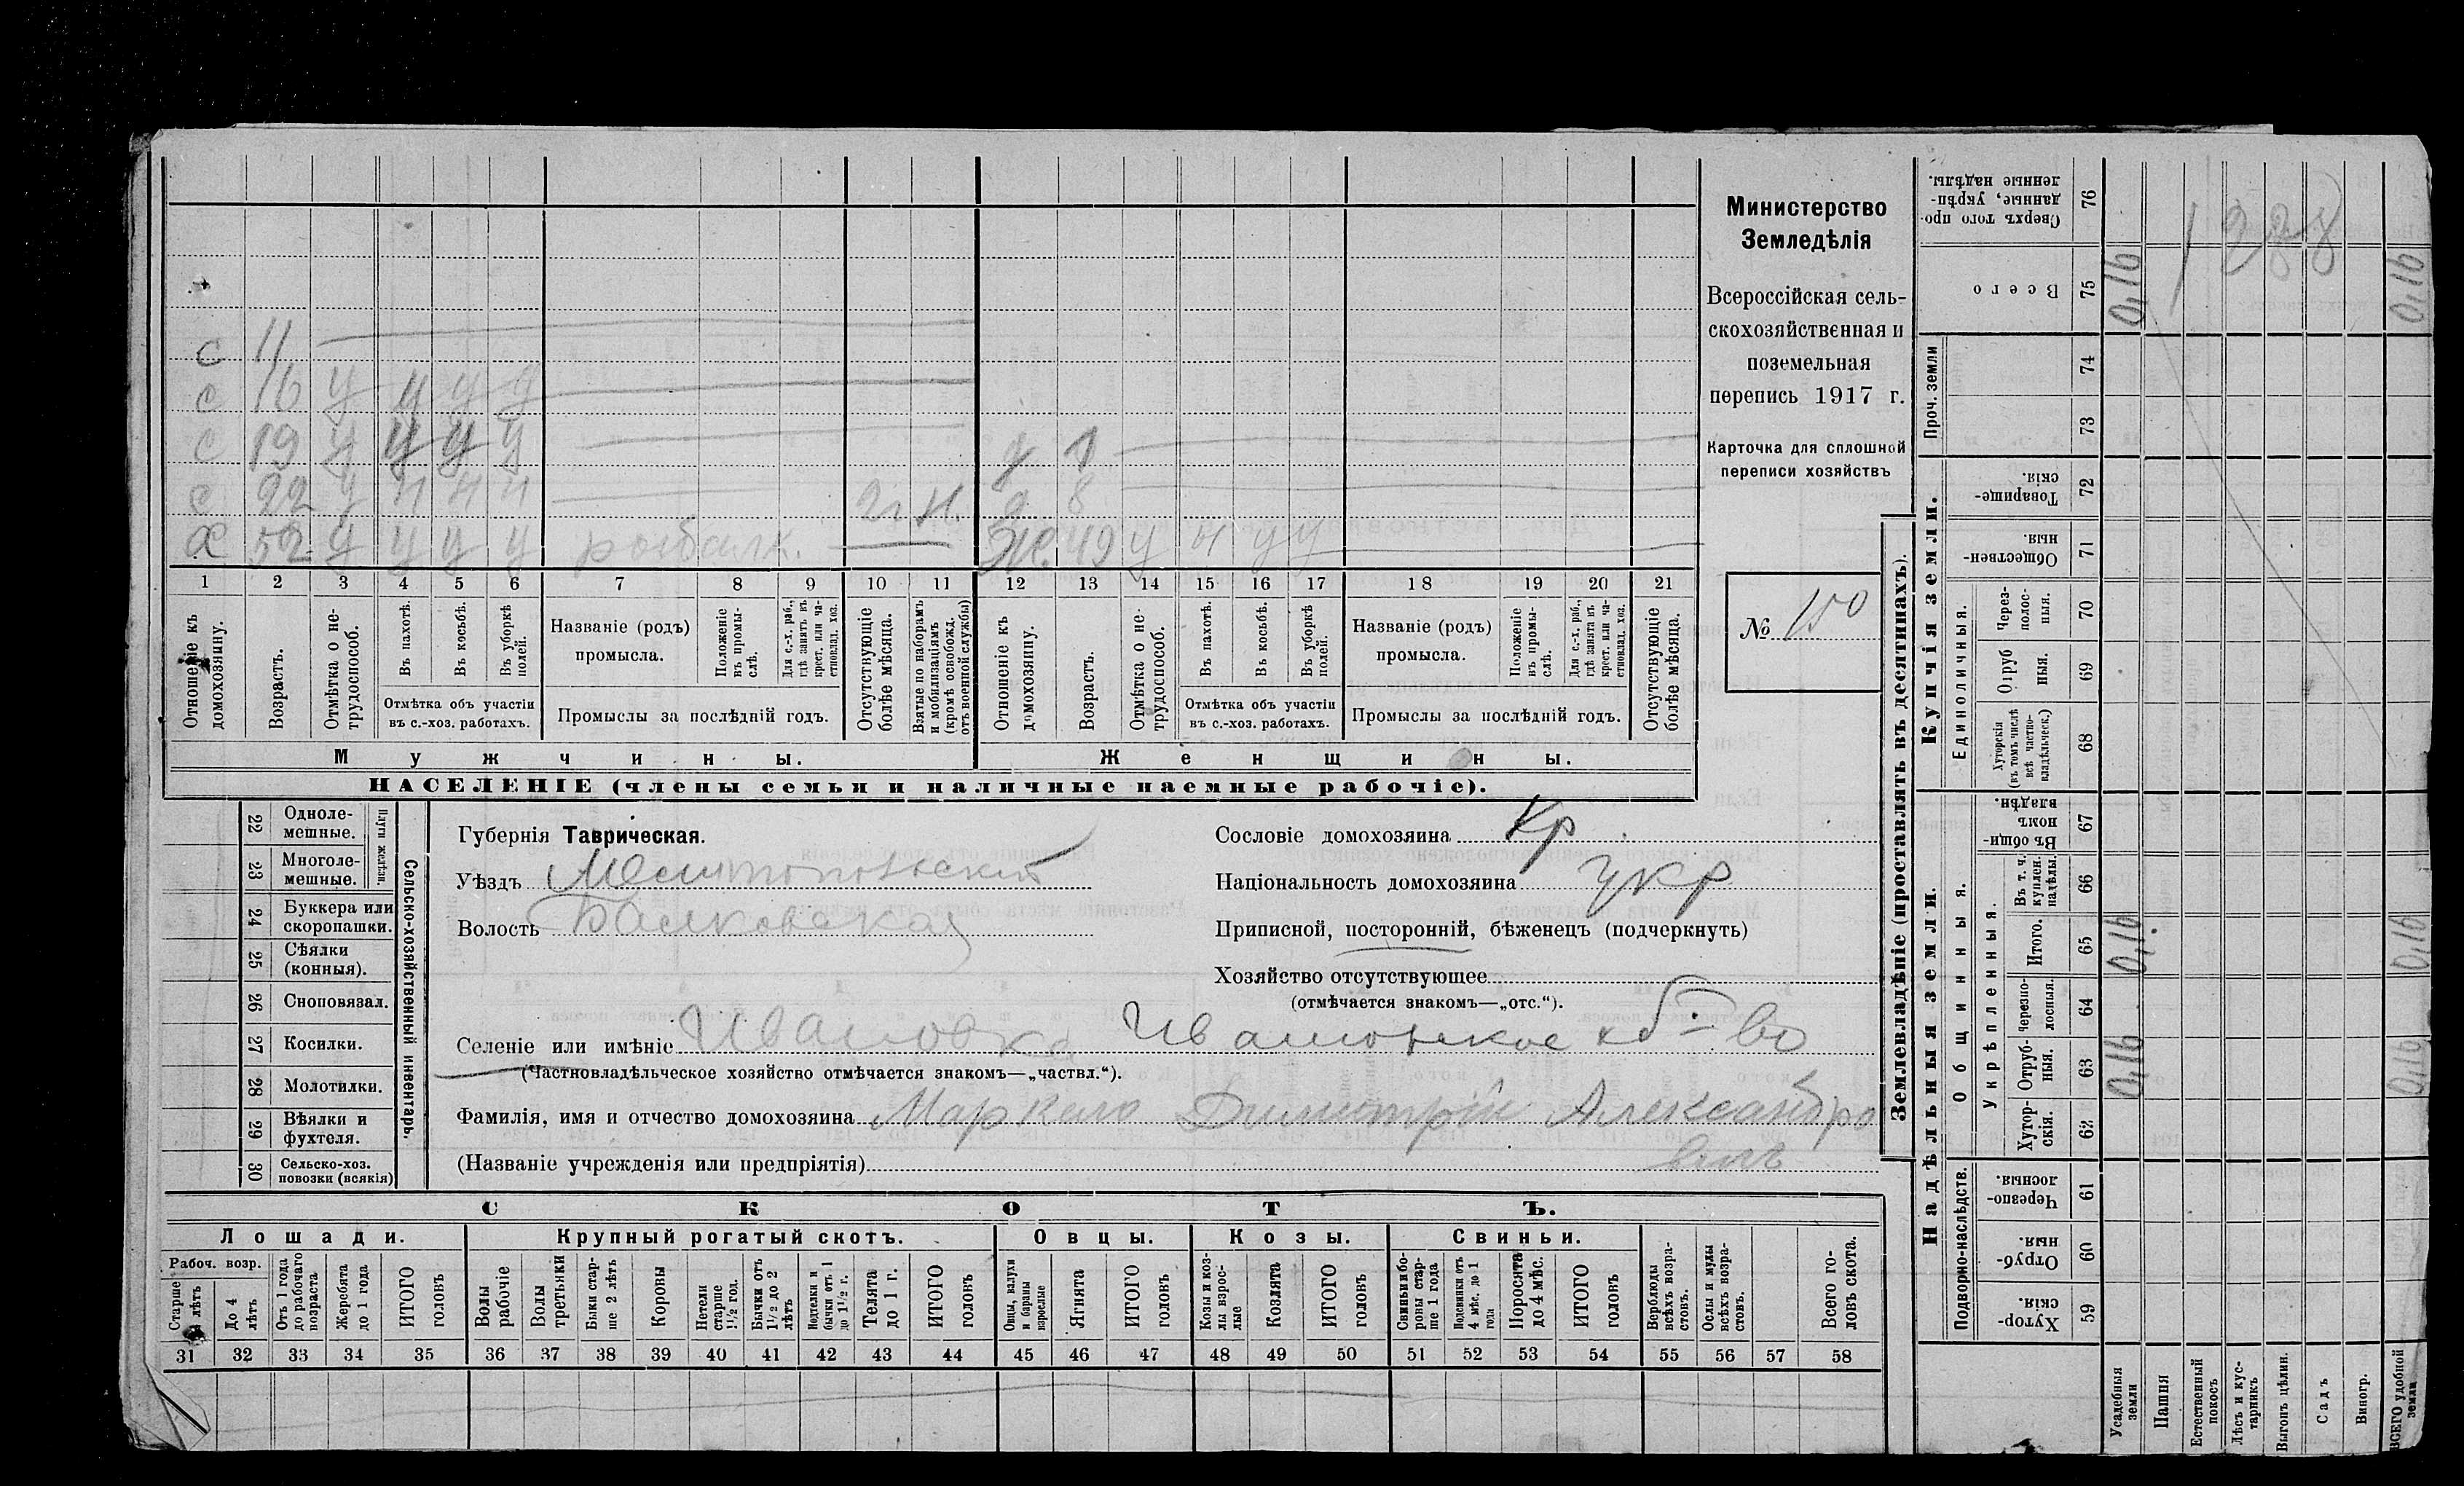 с 11
с 16 у у у у
с 19 у у у у
д 1
с 22 у н н н
2 г. н.
д 8
х 52 у у у у рыбалк.
Ж. 49 у н у у
1 2 3 4 5 6 7 8 9 10 11 12 13 14 15 16 17 18 19 20 21
Отношеніе къ домохозяину.
Возрастъ.
Отмѣтка о не-трудоспособ.
Въ пахотѣ.
Въ косьбѣ.
Въ уборкѣ полей.
Отмѣтка объ участіи
въ с.-хоз. работахъ.
Названіе (родъ)
промысла.
Положеніе въ промы-слѣ.
Для с.-х. раб., гдѣ занятъ въ крест. или ча-стновлад. хоз.
Промыслы за послѣдній годъ.
Отсутствующіе болѣе мѣсяца.
Взятые по наборамъ и мобилизаціямъ (кромѣ освобожд. отъ военной службы)
Отношеніе къ домохозяину.
Возрастъ.
Отмѣтка о не-трудоспособ.
Въ пахотѣ.
Въ косьбѣ.
Въ уборкѣ полей.
Отмѣтка объ участіи
въ с.-хоз. работахъ.
Названіе (родъ)
промысла.
Положеніе въ промы-слѣ.
Для с.-х. раб., гдѣ занята въ крест. или ча-стновлад. хоз.
Промыслы за послѣдній годъ.
Отсутствующіе болѣе мѣсяца.
Мужчины. Женщины.
НАСЕЛЕНІЕ (члены семьи и наличные наемные рабочіе).
Министерство
Земледѣлія
Всероссійская сель-
скохозяйственная и
поземельная
перепись 1917 г.
Карточка для сплошной
переписи хозяйствъ
№ 150
22 Одноле-мешные.
23 Многоле-мешные.
Плуги желѣзн.
24 Буккера или скоропашки.
25 Сѣялки (конныя).
26 Сноповязал.
27 Косилки.
28 Молотилки.
29 Вѣялки и фухтеля.
30 Сельско-хоз. повозки (всякія)
Сельско-хозяйственный инвентарь.
Губернія Таврическая.
Уѣздъ Мелитопольскій
Волость Балковская
Сословіе домохозяина Кр.
Національность домохозяина укр
Приписной, посторонній, бѣженецъ (подчеркнуть)
Хозяйство отсутствующее
(отмѣчается знакомъ—„отс.“).
Селеніе или имѣніе Ивановка Ивановское об-во
(Частновладѣльческое хозяйство отмѣчается знакомъ—„частвл.“).
Фамилія, имя и отчество домохозяина Маркело Димитрій Александро
вичъ
(Названіе учрежденія или предпріятія)
СКОТЪ.
Лошади. Крупный рогатый скотъ. Овцы. Козы. Свиньи.
Рабоч. возр.
Старше лѣтъ
До 4 лѣтъ
Отъ 1 года до рабочаго возраста
Жеребята до 1 года
ИТОГО головъ
Волы рабочіе
Волы третьяки
Быки стар-ше 2 лѣтъ
Коровы
Нетели старше 1½ год.
Бычки отъ 1½ до 2 лѣтъ
Подтелки и бычки отъ 1 до 1½ г.
Телята до 1 г.
ИТОГО головъ
Овцы, валухи и бараны взрослые
Ягнята
ИТОГО головъ
Козы и коз-лы взрос-лые
Козлята
ИТОГО головъ
Свиньи и бо-ровы стар-ше 1 года
Подсвинки отъ 4 мѣс. до 1 года
Поросята до 4 мѣс.
ИТОГО головъ
Верблюды всѣхъ возра-стовъ.
Ослы и мулы всѣхъ возра-стовъ.
Всего го-ловъ скота.
31 32 33 34 35 36 37 38 39 40 41 42 43 44 45 46 47 48 49 50 51 52 53 54 55 56 57 58
Землевладѣніе (проставлять въ десятинахъ).
Надѣльныя земли. Купчія земли. Проч. земли
Подворно-наслѣдств.
Общинныя.
Укрѣпленныя.
Единоличныя.
Сверхъ того про-данные, укрѣп-ленные надѣлы. 76
Всего 75 0,16 0,16
74
73
Товарище-скія. 72
Обществен-ныя. 71
Через-полос-ныя. 70
Отруб ныя. 69
Хуторскія (въ томъ числѣ всѣ частно-владѣльческ.) 68
Въ общи-номъ владѣн. 67
Въ т. ч. куплен. надѣлы. 66
Итого. 65 0,16. 0,16
Черезпо-лосныя. 64
Отруб-ныя. 63 0,16 0,16
Хутор-скія. 62
Черезпо-лосныя. 61
Отруб-ныя. 60
Хутор-скія. 59
Усадебныя земли
Пашня
Естественный покосъ
Лѣсъ и кус-тарникъ
Выгонъ цѣлин.
Садъ
Виногр.
ВСЕГО удобной земли